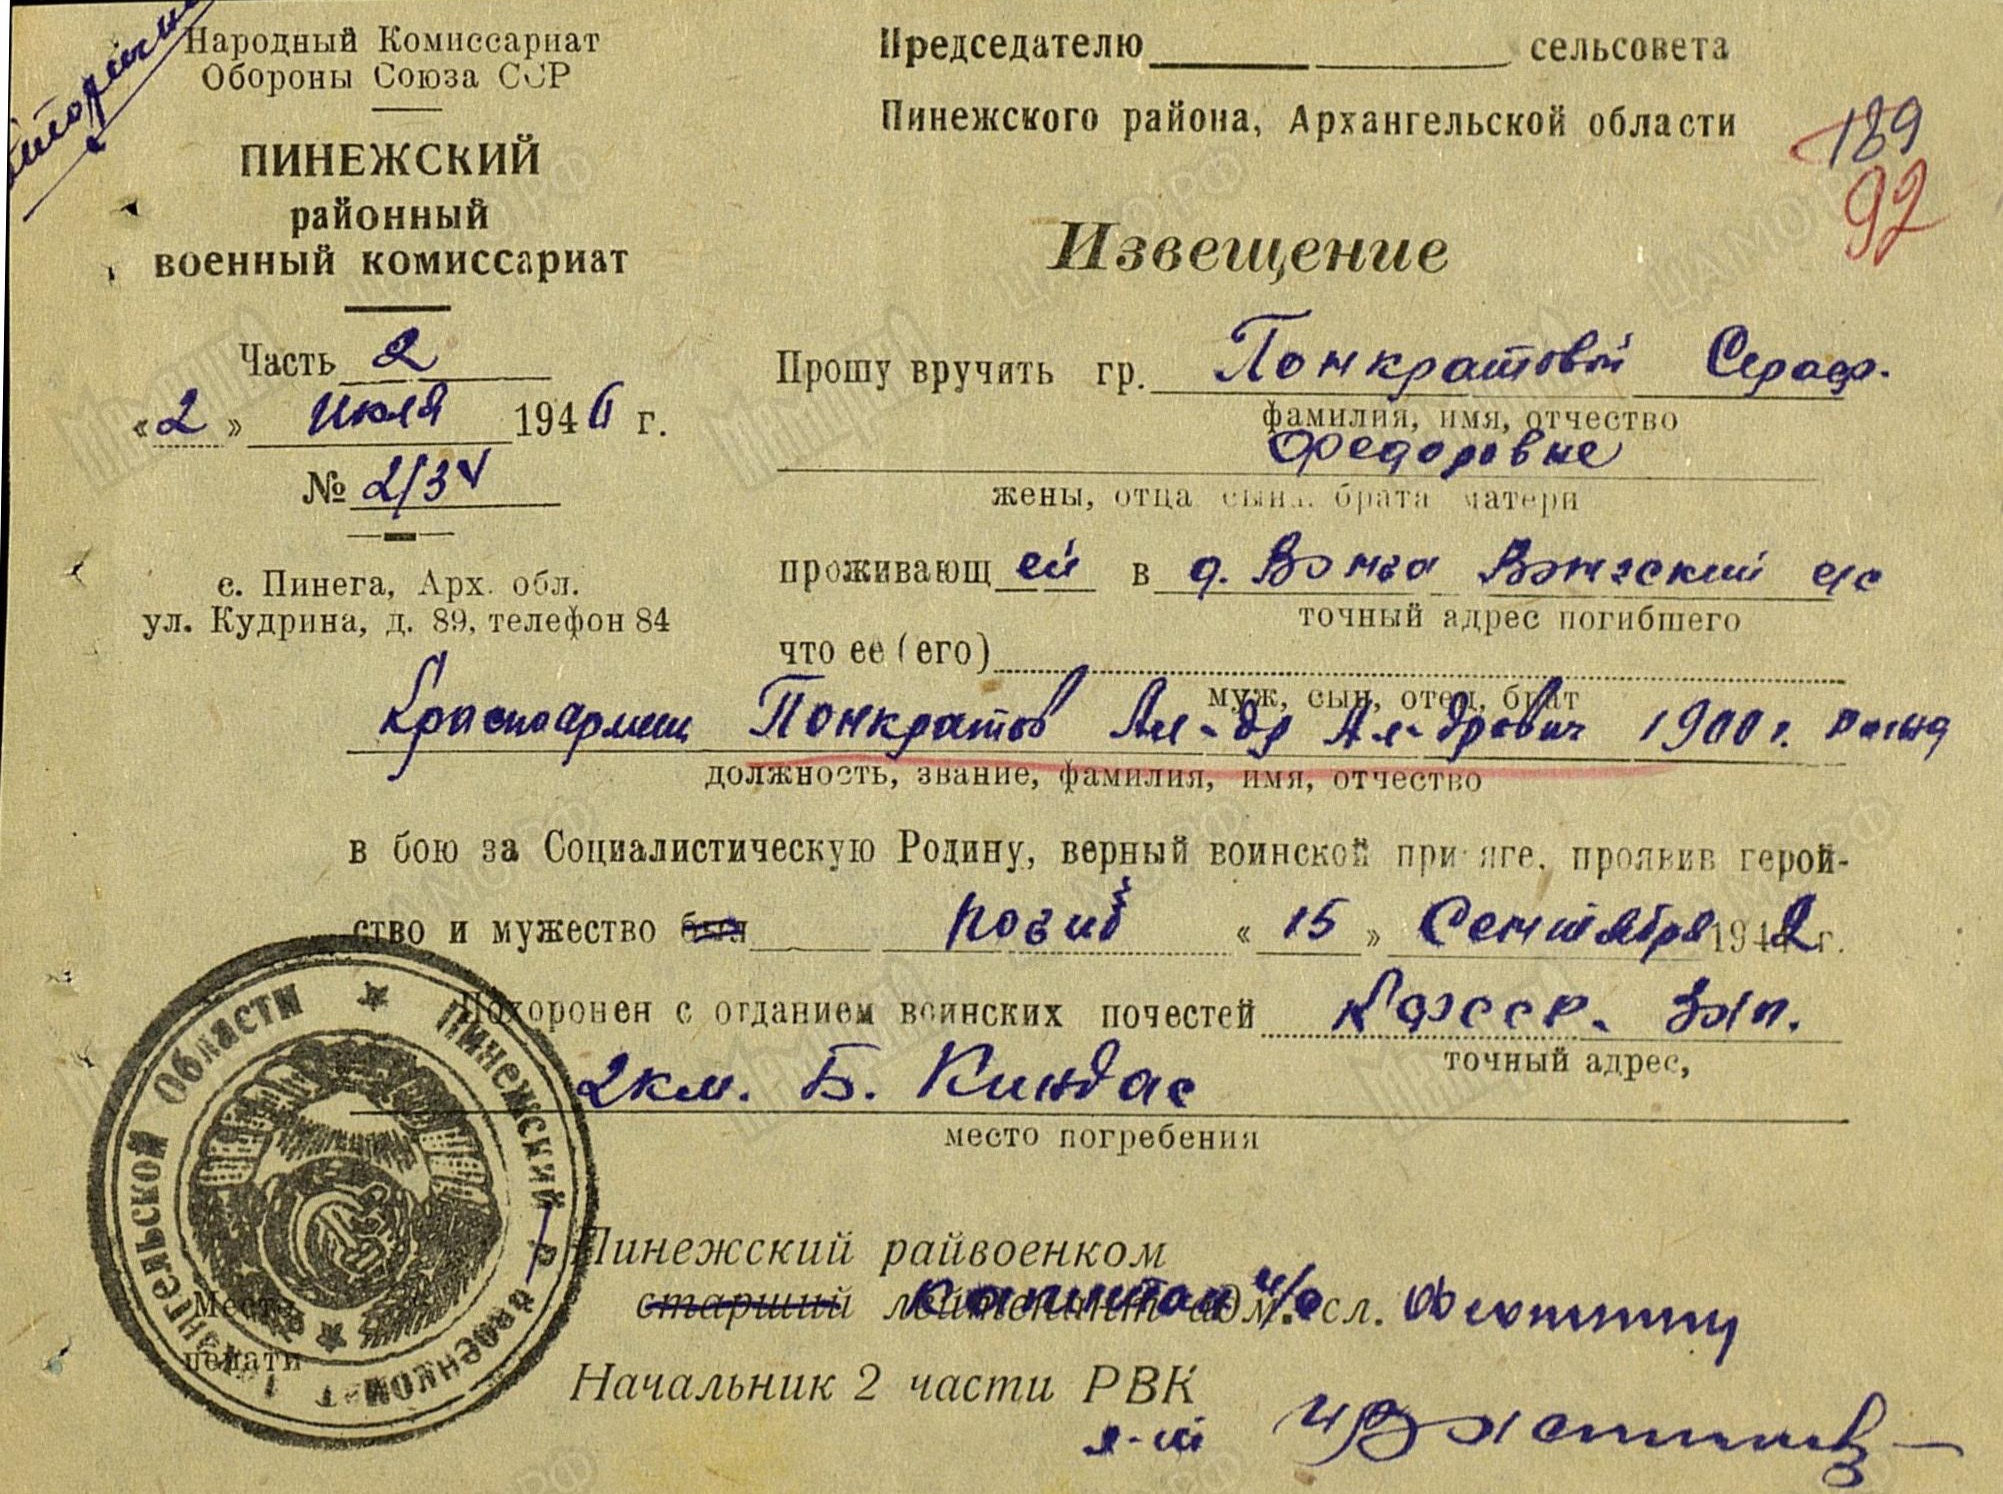 Народный Комиссариат
Обороны Союза ССР
ПИНЕЖСКИЙ
районный
военный комиссариат
Часть 2
«2» июля 1946 г.
№ 2/34
с. Пинега, Арх. обл.
ул. Кудрина, д. 89, телефон 84
Председателю сельсовета
Пинежского района, Архангельской области
189
92
Извещение
Прошу вручить гр. Понкратовой Сераф.
фамилия, имя, отчество
Федоровне
жены, отца сына, брата матери
проживающ ей в д. Вонга Вонгский с/с
точный адрес погибшего
что ее (его)
муж, сын, отец, брат
Красноармеец Понкратов Ал-др Ал-дрович 1900 г.
должность, звание, фамилия, имя, отчество
в бою за Социалистическую Родину, верный воинской присяге, проявив герой-
ство и мужество был погиб «15» Сентября 1942 г.
Похоронен с отданием воинских почестей КФССР. Зап.
точный адрес,
2 км. Б. Киндас
место погребения
Пинежский райвоенком
старший лейтенант адм. сл. капитан
Начальник 2 части РВК
Место
печати
Пинежский Райвоенкомат Архангельской Области
ЦАМО РФ